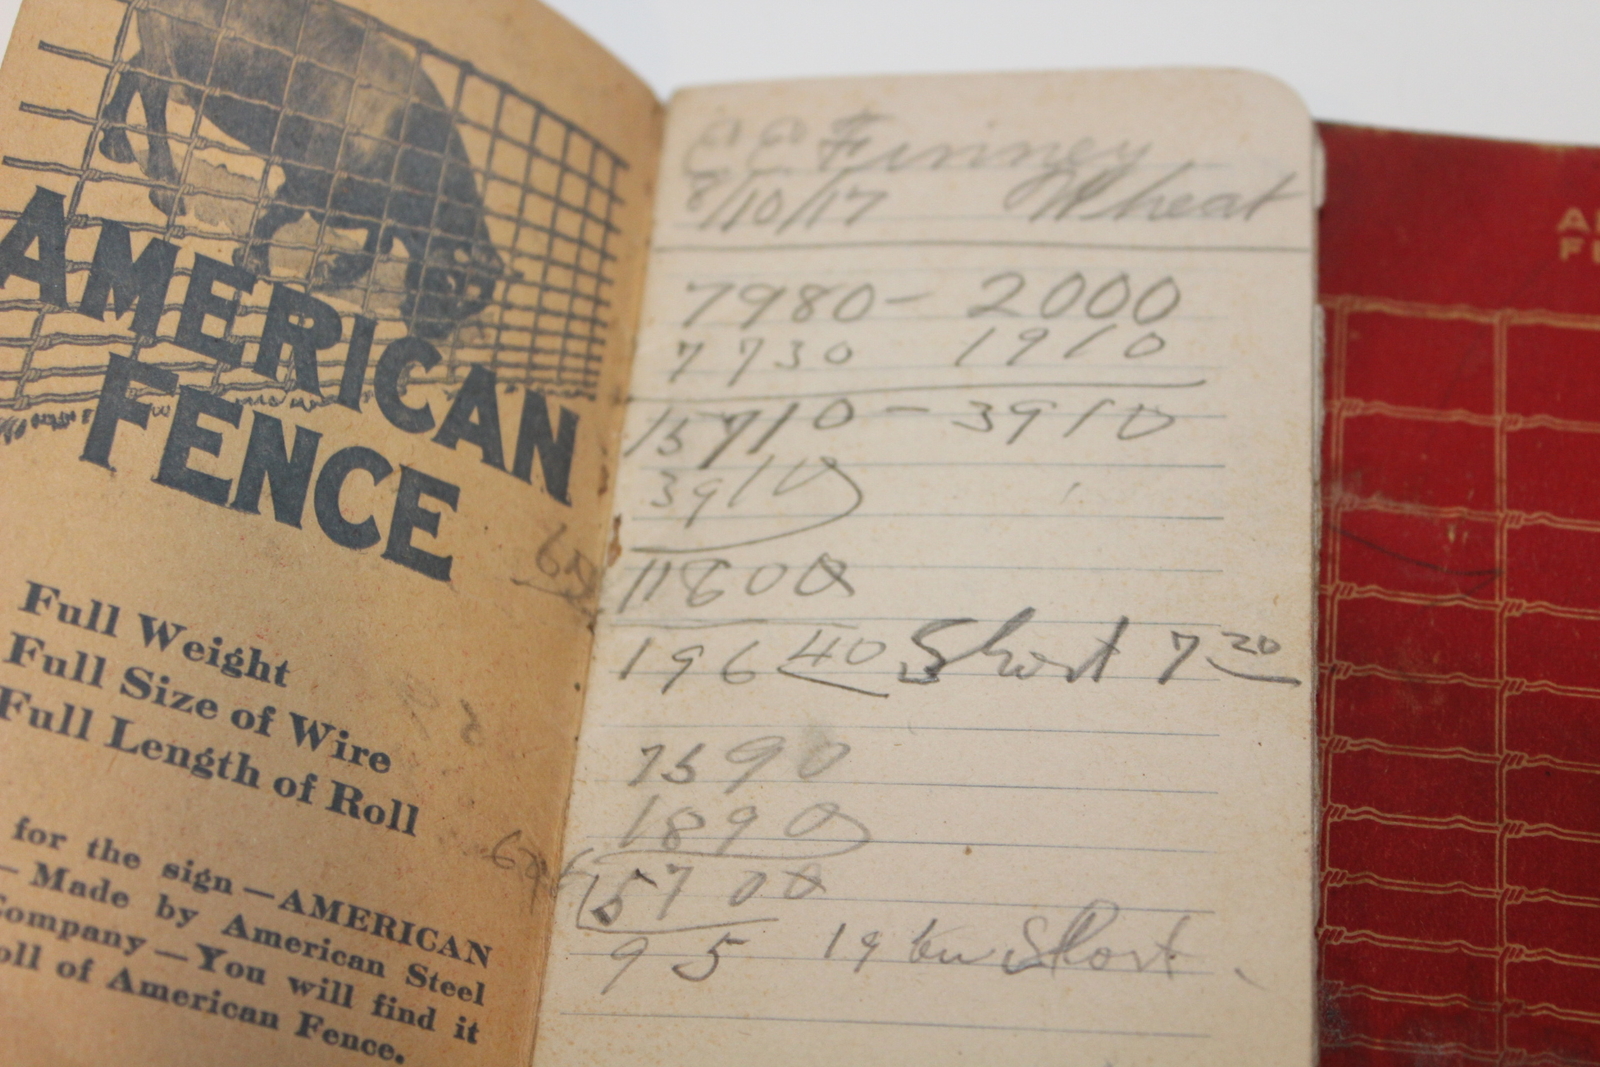 AMERICAN
FENCE
Full Weight
Full Size of Wire
Full Length of Roll
for the sign—AMERICAN
— Made by American Steel
Company—You will find it
oll of American Fence.
Finney
8/10/17 Wheat
7980 - 2000
7730 1910
15710 - 3910
3910
11800
60
196 40 Short 7 20
7590
1890
5700
95 19 bu Short
A
F